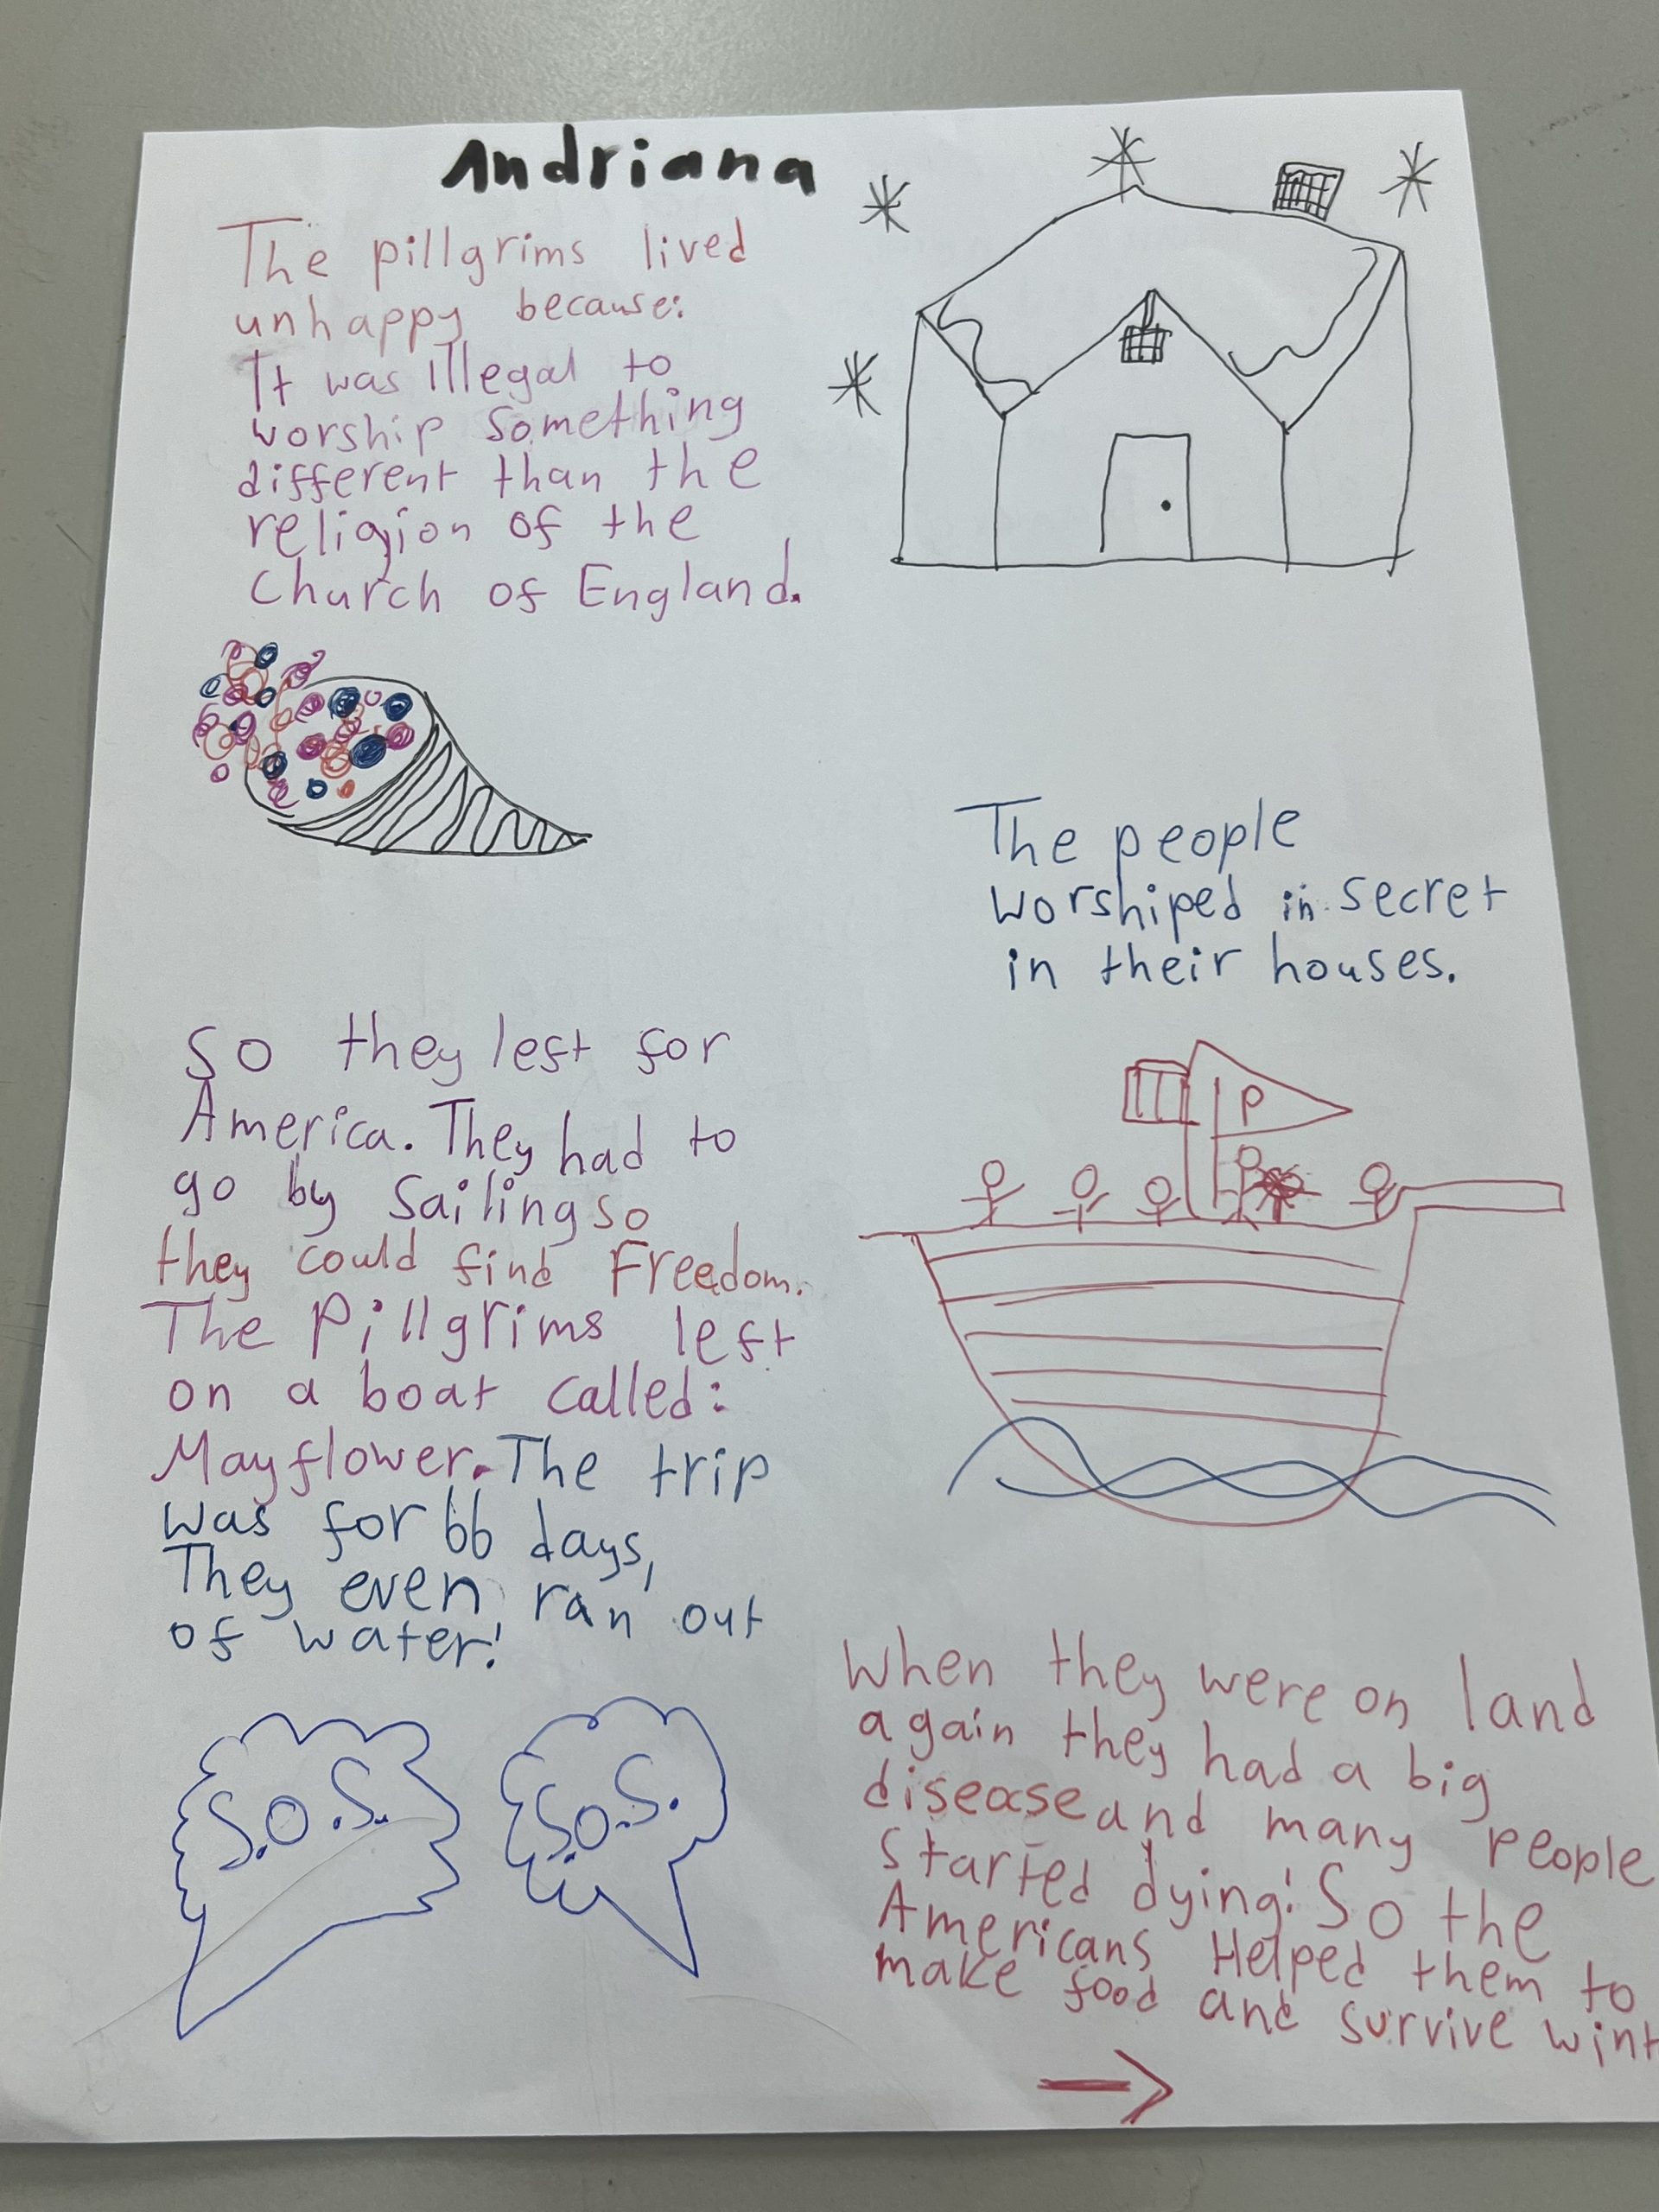 Andriana
The pillgrims lived
unhappy because:
It was Illegal to
worship something
different than the
religion of the
Church of England.
The people
worshiped in secret
in their houses.
So they left for
America. They had to
go by sailing so
they could find Freedom.
The Pillgrims left
on a boat called:
Mayflower. The trip
was for 66 days,
They even ran out
of water!
P
S.O.S.
S.O.S.
When they were on land
again they had a big
disease and many people
started dying! So the
Americans Helped them to
make food and survive wint